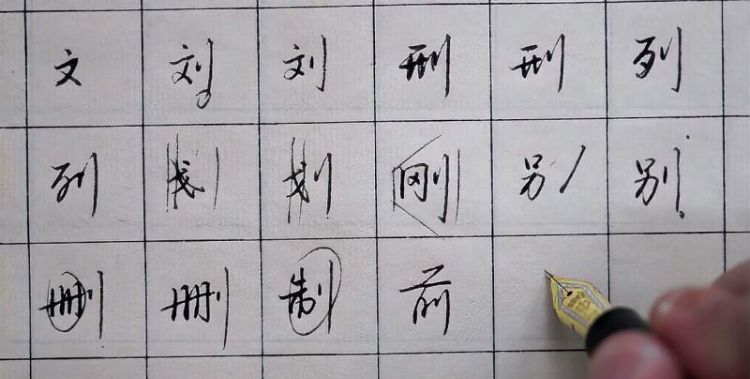 文刘刘刑刑列
列划划刚别别
删删制前